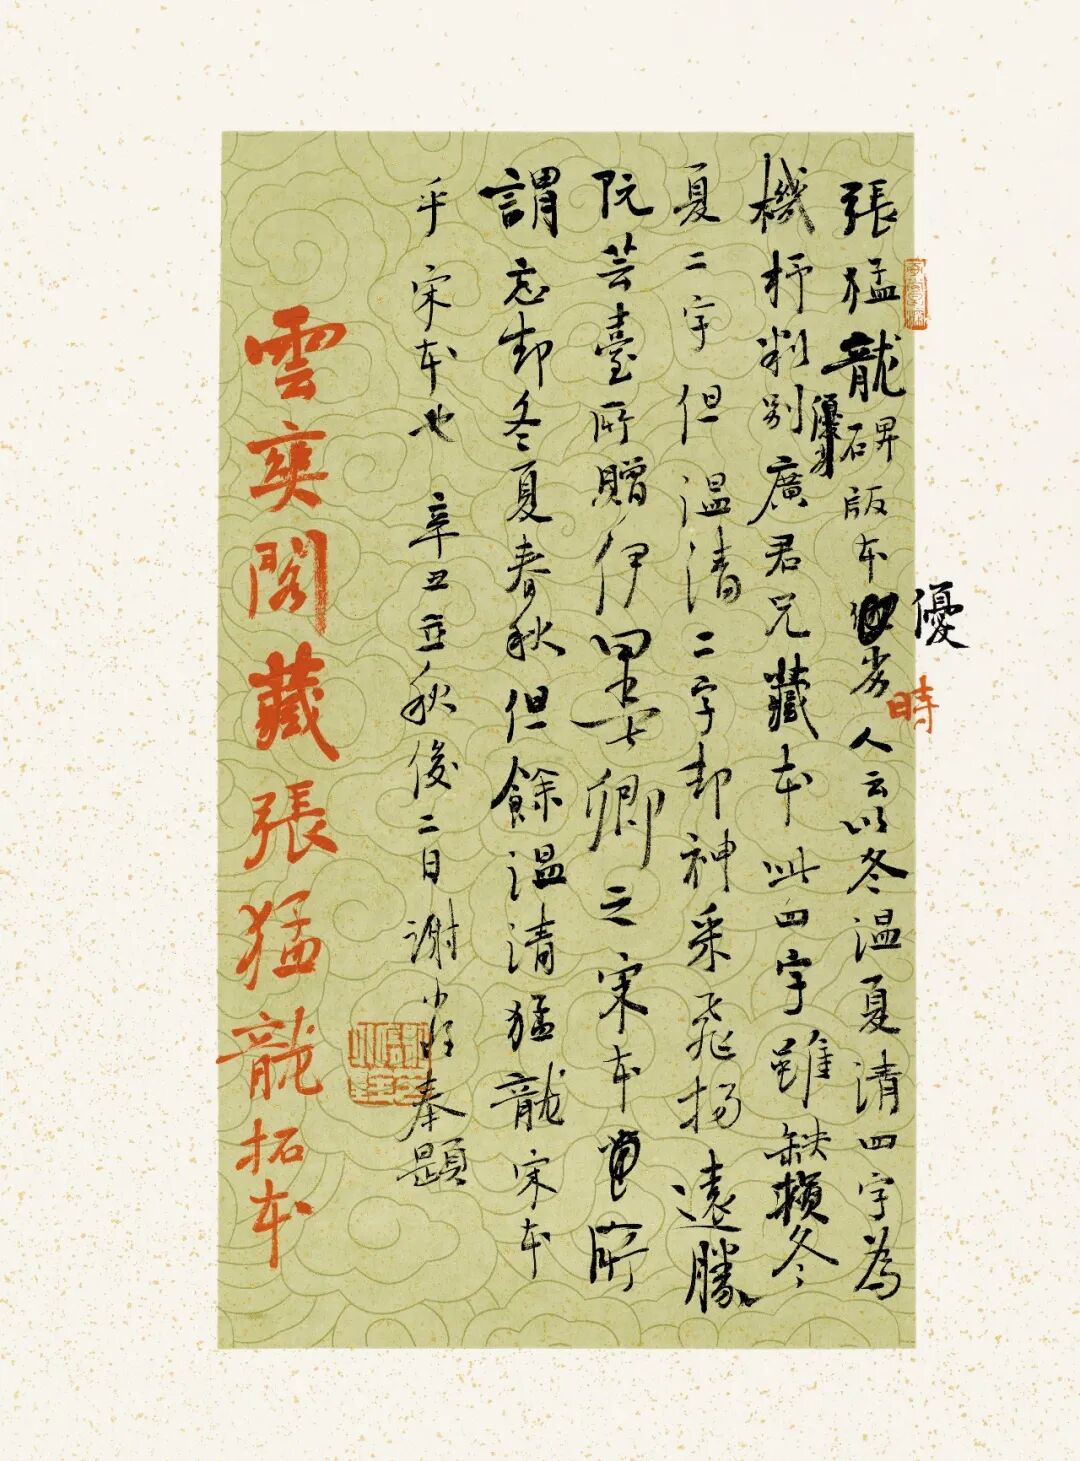 優
時
張猛龍碑版本劣人云以冬温夏清四字為
優劣
機杼判別廣君兄藏本此四字雖缺冬
夏二字但温清二字却神采飛揚遠勝
阮芸臺所贈伊墨卿之宋本所
謂忘却冬夏春秋但餘温清猛龍宋本
乎宋本也 辛丑立秋後二日謝小奉題
雲閣藏張猛龍拓本